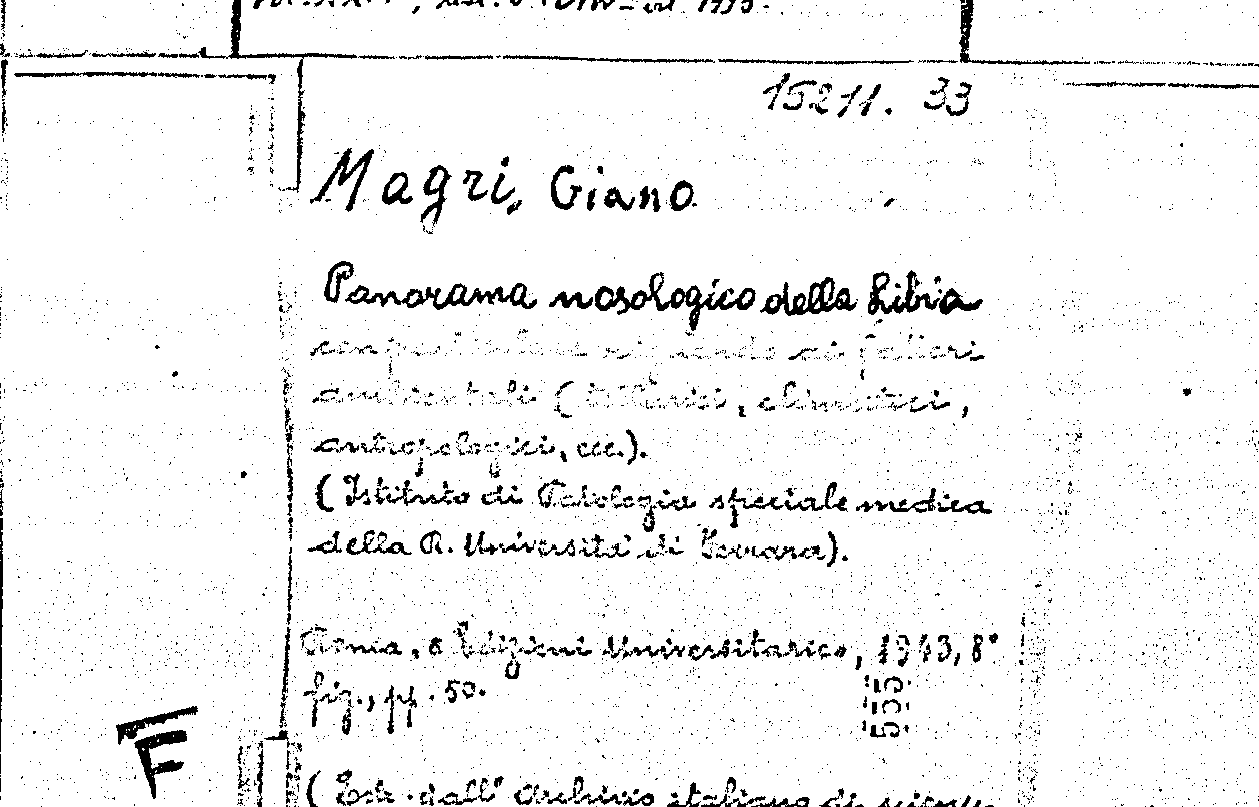 15211. 33
Magri, Giano
Panorama nosologico della Libia
con particolare riguardo ai fattori
ambientali ( , climatici,
antropologici, ecc.).
( Istituto di Patologia speciale medica
della R. Università di Ferrara).
Roma, Edizioni Universitarie, 1943, 8°
fig., pp. 50.
555
F
( Estr. dall' Archivio italiano di scienze